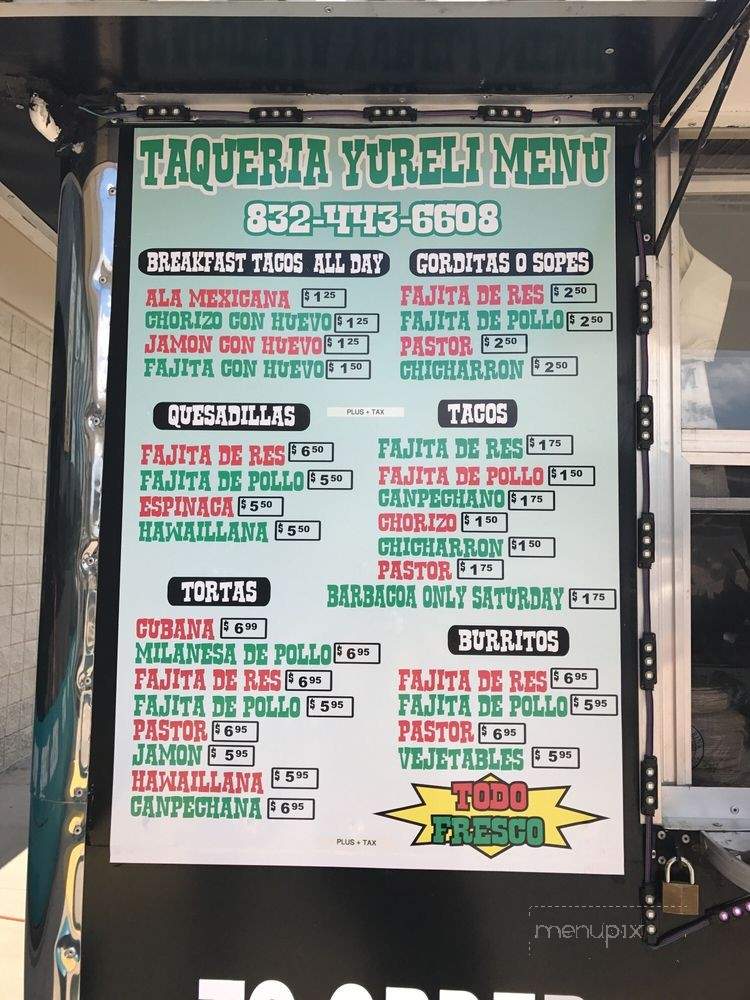 TAQUERIA YURELI MENU
832-443-6608
BREAKFAST TACOS ALL DAY
ALA MEXICANA $1.25
CHORIZO CON HUEVO $1.25
JAMON CON HUEVO $1.25
FAJITA CON HUEVO $1.50
GORDITAS O SOPES
FAJITA DE RES $2.50
FAJITA DE POLLO $2.50
PASTOR $2.50
CHICHARRON $2.50
PLUS + TAX
QUESADILLAS
FAJITA DE RES $6.50
FAJITA DE POLLO $5.50
ESPINACA $5.50
HAWAILLANA $5.50
TACOS
FAJITA DE RES $1.75
FAJITA DE POLLO $1.50
CANPECHANO $1.75
CHORIZO $1.50
CHICHARRON $1.50
PASTOR $1.75
BARBACOA ONLY SATURDAY $1.75
TORTAS
CUBANA $6.99
MILANESA DE POLLO $6.95
FAJITA DE RES $6.95
FAJITA DE POLLO $5.95
PASTOR $6.95
JAMON $5.95
HAWAILLANA $5.95
CANPECHANA $6.95
BURRITOS
FAJITA DE RES $6.95
FAJITA DE POLLO $5.95
PASTOR $6.95
VEJETABLES $5.95
TODO
FRESCO
PLUS + TAX
menupix
TO ORDER